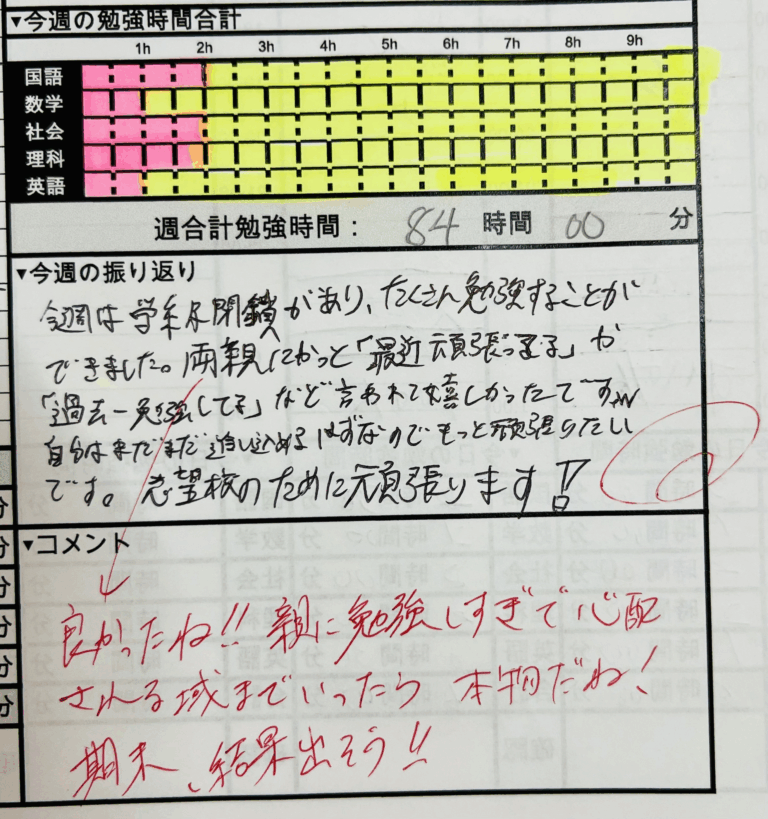 ▼今週の勉強時間合計
1h 2h 3h 4h 5h 6h 7h 8h 9h
国語
数学
社会
理科
英語
週合計勉強時間: 84 時間 00 分
▼今週の振り返り
今週は学級閉鎖があり、たくさん勉強することが
できました。両親にかっと「最近頑張ってる」や
「過去一勉強してる」など言われて嬉しかったですw
自分はまだまだ追い込めるはずなのでもっと頑張りたい
です。志望校のために頑張ります!!
▼コメント
良かったね!! 親に勉強しすぎで心配
される域までいったら 本物だね!
期末、結果出そう!!